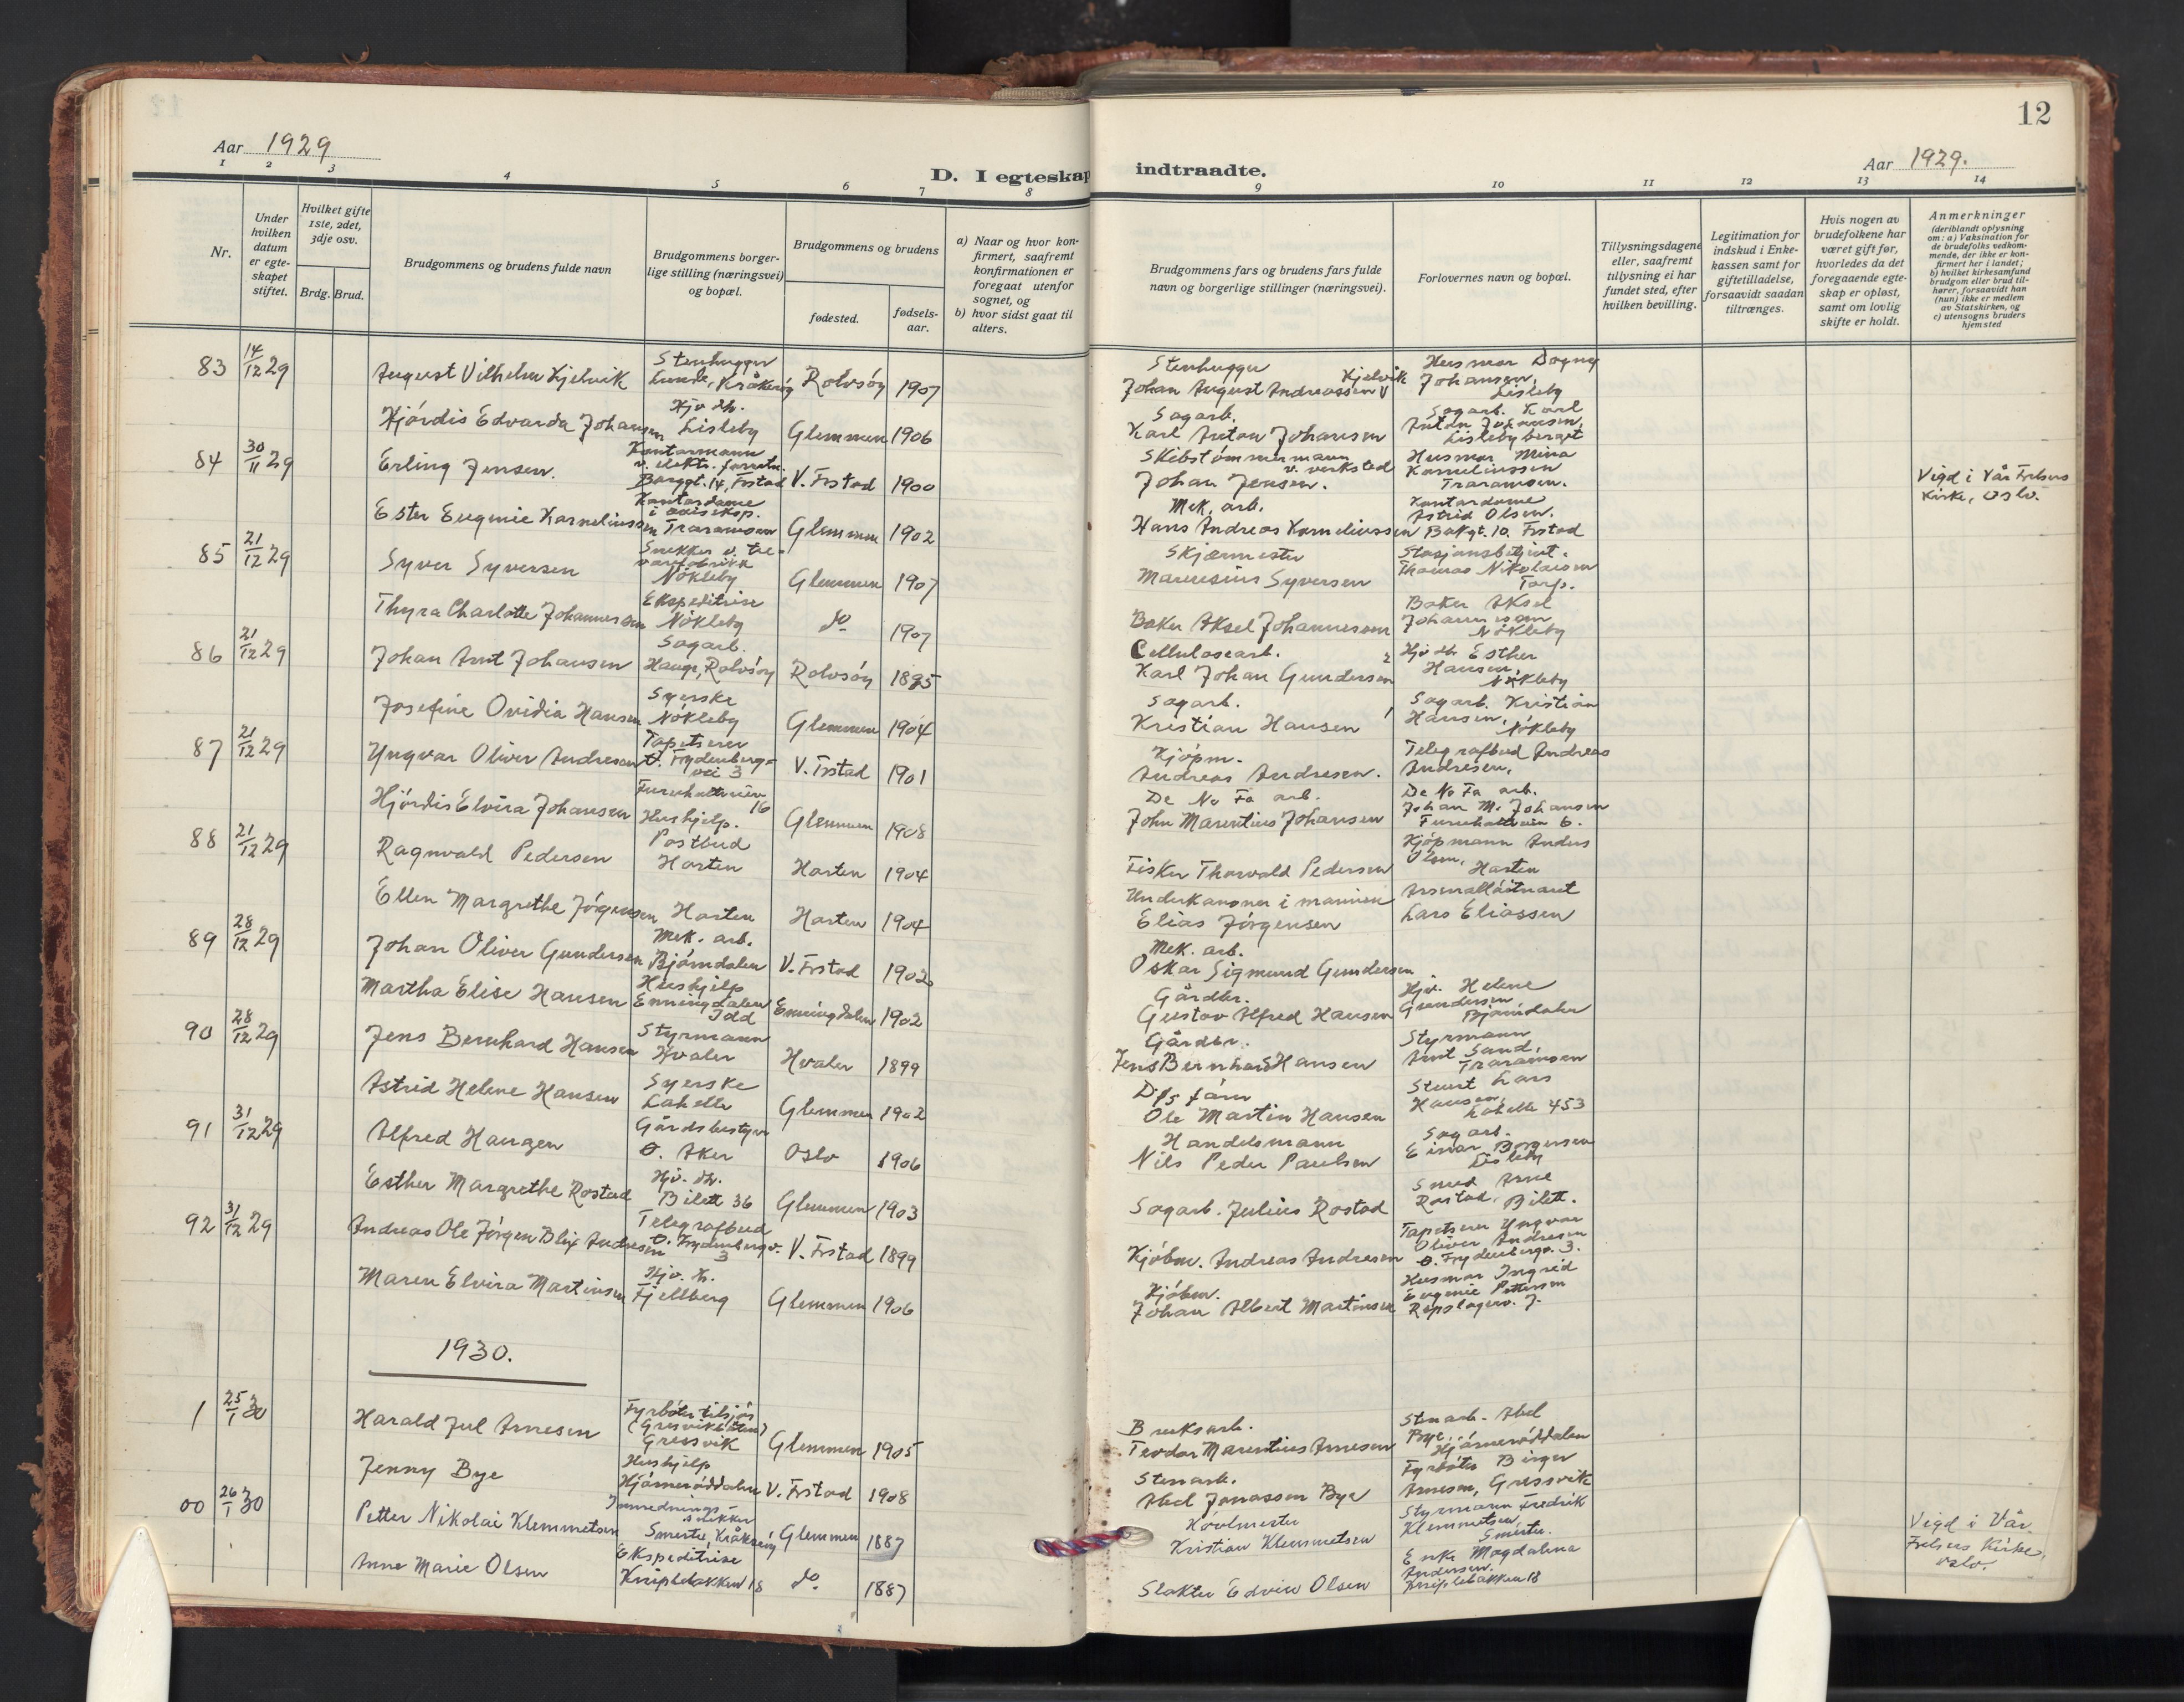 12
Aar 1929
Aar 1929.
D. I egteskap indtraadte.
1 2 3 4 5 6 7 8 9 10 11 12 13 14
Nr.
Under hvilken datum er egteskapet stiftet.
Hvilket gifte 1ste, 2det, 3dje osv.
Brdg. Brud.
Brudgommens og brudens fulde navn
Brudgommens borgerlige stilling (næringsvei) og bopæl.
Brudgommens og brudens
fødested.
fødselsaar.
a) Naar og hvor konfirmert, saafremt konfirmationen er foregaat utenfor sognet, og
b) hvor sidst gaat til alters.
Brudgommens fars og brudens fars fulde navn og borgerlige stillinger (næringsvei).
Forlovernes navn og bopæl.
Tillysningsdagene eller, saafremt tillysning ei har fundet sted, efter hvilken bevilling.
Legitimation for indskud i Enkekassen samt for giftetilladelse, forsaavidt saadan tiltrænges.
Hvis nogen av brudefolkene har været gift før, hvorledes da det foregaaende egteskap er opløst, samt om lovlig skifte er holdt.
Anmerkninger (deriblandt oplysning om: a) Vaksination for de brudefolks vedkommende, der ikke er konfirmert her i landet; b) hvilket kirkesamfund brudgom eller brud tilhører, forsaavidt han (hun) ikke er medlem av Statskirken, og c) utensogns bruders hjemsted
83 14/12 29 August Vilhelm Kjelvik Stenhugger Lunde, Kråkerøy Rolvsøy 1907 Stenhugger Johan August Andreassen Kjelvik Husmor Dagny Johansen, Lisleby
Hjórdis Edvarda Johansen Hjv. dtr. Lisleby Glemmen 1906 Sagarb. Karl Anton Johansen Sagarb. Karl Anton Johansen, Lislebyberget
84 30/11 29 Erling Jensen. Kontormann v. elektr. forretn. Borggt. 14, Frstad V. Frstad 1900 Skibstømmermann v. verksted Johan Jensen. Husmor Mina Korneliussen Traramsen. Vigd i Vår Frelsers Kirke, Oslo.
Ester Eugenie Korneliussen Kontordame i aviseksp. Traramsen Glemmen 1902 Mek. arb. Hans Andreas Korneliussen Kontordame Astrid Olsen. Bakgt. 10. Frstad
85 21/12 29 Syver Syversen Snekker v. trevarefabrikk Nókleby Glemmen 1907 Skjærmester Maurisius Syversen Stasjonsbetjent. Thomas Nikolaisen Torp.
Thyra Charlotte Johannessen Ekspeditrise Nókleby do 1907 Baker Aksel Johannessen Baker Aksel Johannessen Nókleby
86 21/12 29 Johan Arnt Johansen Sagarb. Hauge, Rolvsóy Rolvsóy 1895 Cellulosearb. Karl Johan Gundersen Hjv dtr Esther Hansen, Nókleby
Josefine Ovidia Hansen Syerske Nókleby Glemmen 1904 Sagarb. Kristian Hansen Sagarb. Kristian Hansen, Nókleby
87 21/12 29 Yngvar Oliver Andresen Tapetserer O. Frydenbergvei 3 V. Frstad 1901 Kjópm. Andreas Andresen. Telegrafbud Andreas Andresen,
Hjórdis Elvira Johansen 16 Hushjelp. Glemmen 1908 De No Fa arb. John Marentius Johansen De No Fa arb. Johan M. Johansen 6.
88 21/12 29 Ragnvald Pedersen Postbud Horten Horten 1904 Fisker Thorvald Pedersen Kjópmann Anders Olsen, Horten
Ellen Margrethe Jórgensen Horten Horten 1904 Underkanoner i marinen Elias Jórgensen Lars Eliassen
89 28/12 29 Johan Oliver Gundersen Mek. arb. Bjórndalen V. Frstad 1902 Mek. arb. Oskar Sigmund Gundersen
Martha Elise Hansen Hushjelp Enningdalen Idd Enningdalen 1902 Gårdbr. Gustav Alfred Hansen Hjv. Helene Gundersen Bjórndalen
90 28/12 29 Jens Bernhard Hansen Styrmann Hvaler Hvaler 1899 Gårdbr. Jens Bernhard Hansen Styrmann Arnt Sand, Traramsen
Astrid Helene Hansen Syerske Lahelle Glemmen 1902 Ole Martin Hansen Stuert Lars Hansen, Lahelle 453
91 31/12 29 Alfred Haugen Gårdsbestyrer O. Aker Oslo 1906 Handelsmann Nils Peder Paulsen Sagarb. Einar Borgersen Lisleby
Esther Margrethe Rostad Hjv. dtr. Bilett 36 Glemmen 1903 Sagarb. Julius Rostad Smed Arne Rostad. Bilett.
92 31/12 29 Andreas Ole Jórgen Blix Andresen Telegrafbud O. Frydenbergv. 3 V. Frstad 1899 Kjóbm. Andreas Andresen Tapetserer Yngvar Oliver Andresen O. Frydenbergv. 3.
Maren Elvira Martinsen Hjv. tr. Fjellberg Glemmen 1906 Kjóbm. Johan Albert Martinsen Husmor Ingrid Eugenie Pettersen Repslagerv. 7.
1930.
1 25/1 30 Harald Jul Arnesen Fyrbóter tilsjós Gressvik Glemmen 1905 Bruksarb. Teodor Marentius Arnesen Stenarb. Abel Bye, Hjórneróddalen
Jenny Bye Hushjelp Hjórneróddalen V. Frstad 1908 Stenarb. Abel Jonassen Bye Fyrbóter Birger Arnesen, Gressvik
00 26/1 30 Petter Nikolai Klemmetsen Smertu, Kråkeróy Glemmen 1887 Kristian Klemmetsen Styrmann Fredrik Klemmetsen Smertu. Vigd i Vår Frelsers Kirke, Oslo.
Anne Marie Olsen Ekspeditrise Kniplebakken 18 do. 1887 Slakter Edvin Olsen Enke Magdalena Andersen. Kniplebakken 18